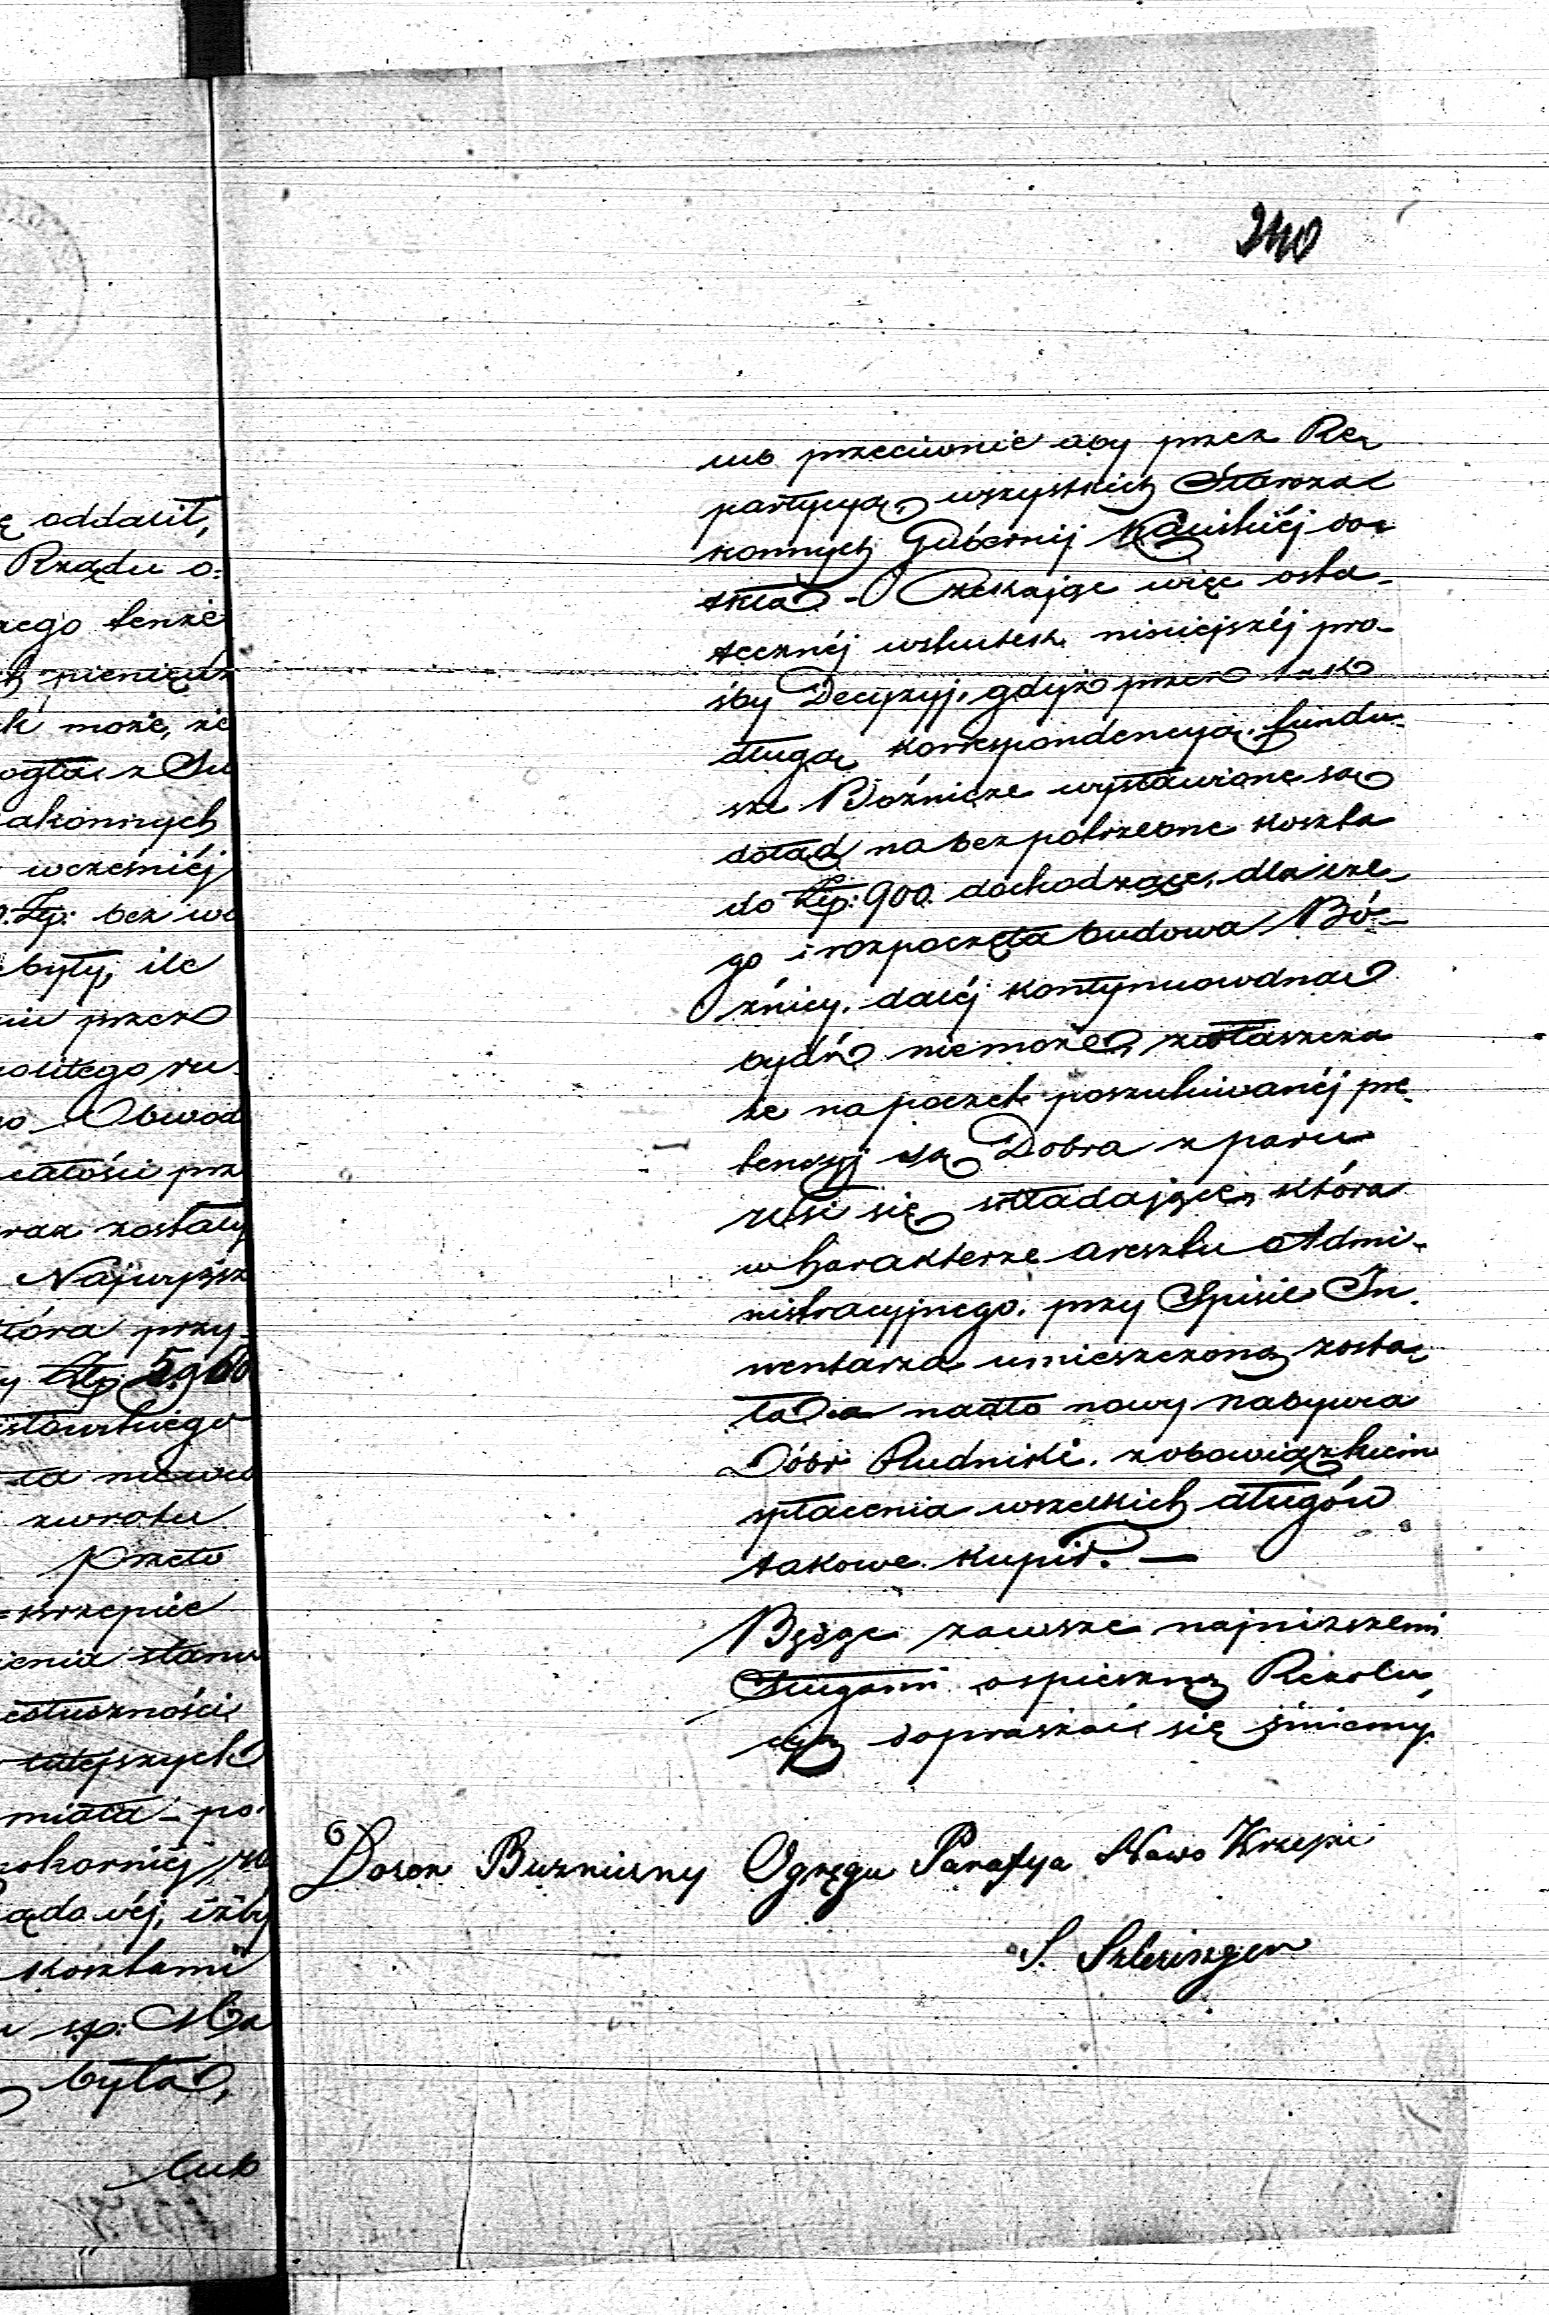 240
ę oddalił,
Rządu o:
tenże
pieniędz
może, że
z Su
akonnych
wcześniéj
Złp: bez
były, ile
przez
Obwod
całości prz
zostały
Najwyższ
która przy-
Złp 5960
zwrotu
przeto
Krzepice
stanu
tutejszych
miała - po:
iżby
kosztami
była,
lub
lub przeciwnie aby przez Re-
partycyą, wszystkich Staroza-
konnych Gubernij Kaliskiéj do-
Czekając więc osta-
tecznéj wskutek niniejszéj pro-
śby Decyzyj, gdyż przez tak
długą korrespondencyą, fundu-
sze Bożnicze wystawione są
dotąd na bezpotrzebne koszta
do Złp: 900. dochodzące, dla cze-
go i rozpoczęta budowa Bó-
żnicy, daléj kontynuowaną
bydź niemoże, zwłaszcza
że na poczet poszukiwanéj pre-
tensyj są Dobra z paru
wsi się składające, która
w harakterze aresztu Admi-
nistracyjnego. przy Spisie In-
wentarza umieszczoną zosta-
ła a nadto nowy nabywca
Dóbr Rudniki. z obowiązkiem
spłacenia wszelkich długów
takowe kupił. —
Będąc zawsze najniższemi
Sługami o spieszną Rezolu-
cyą dopraszać się śmiemy.
Dozor Buzniczny Ogręgu Parafya Nawo Krzepic
S. Szlezinger